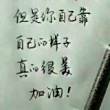 但是你自己靠
自己的样子
真的很美
加油!